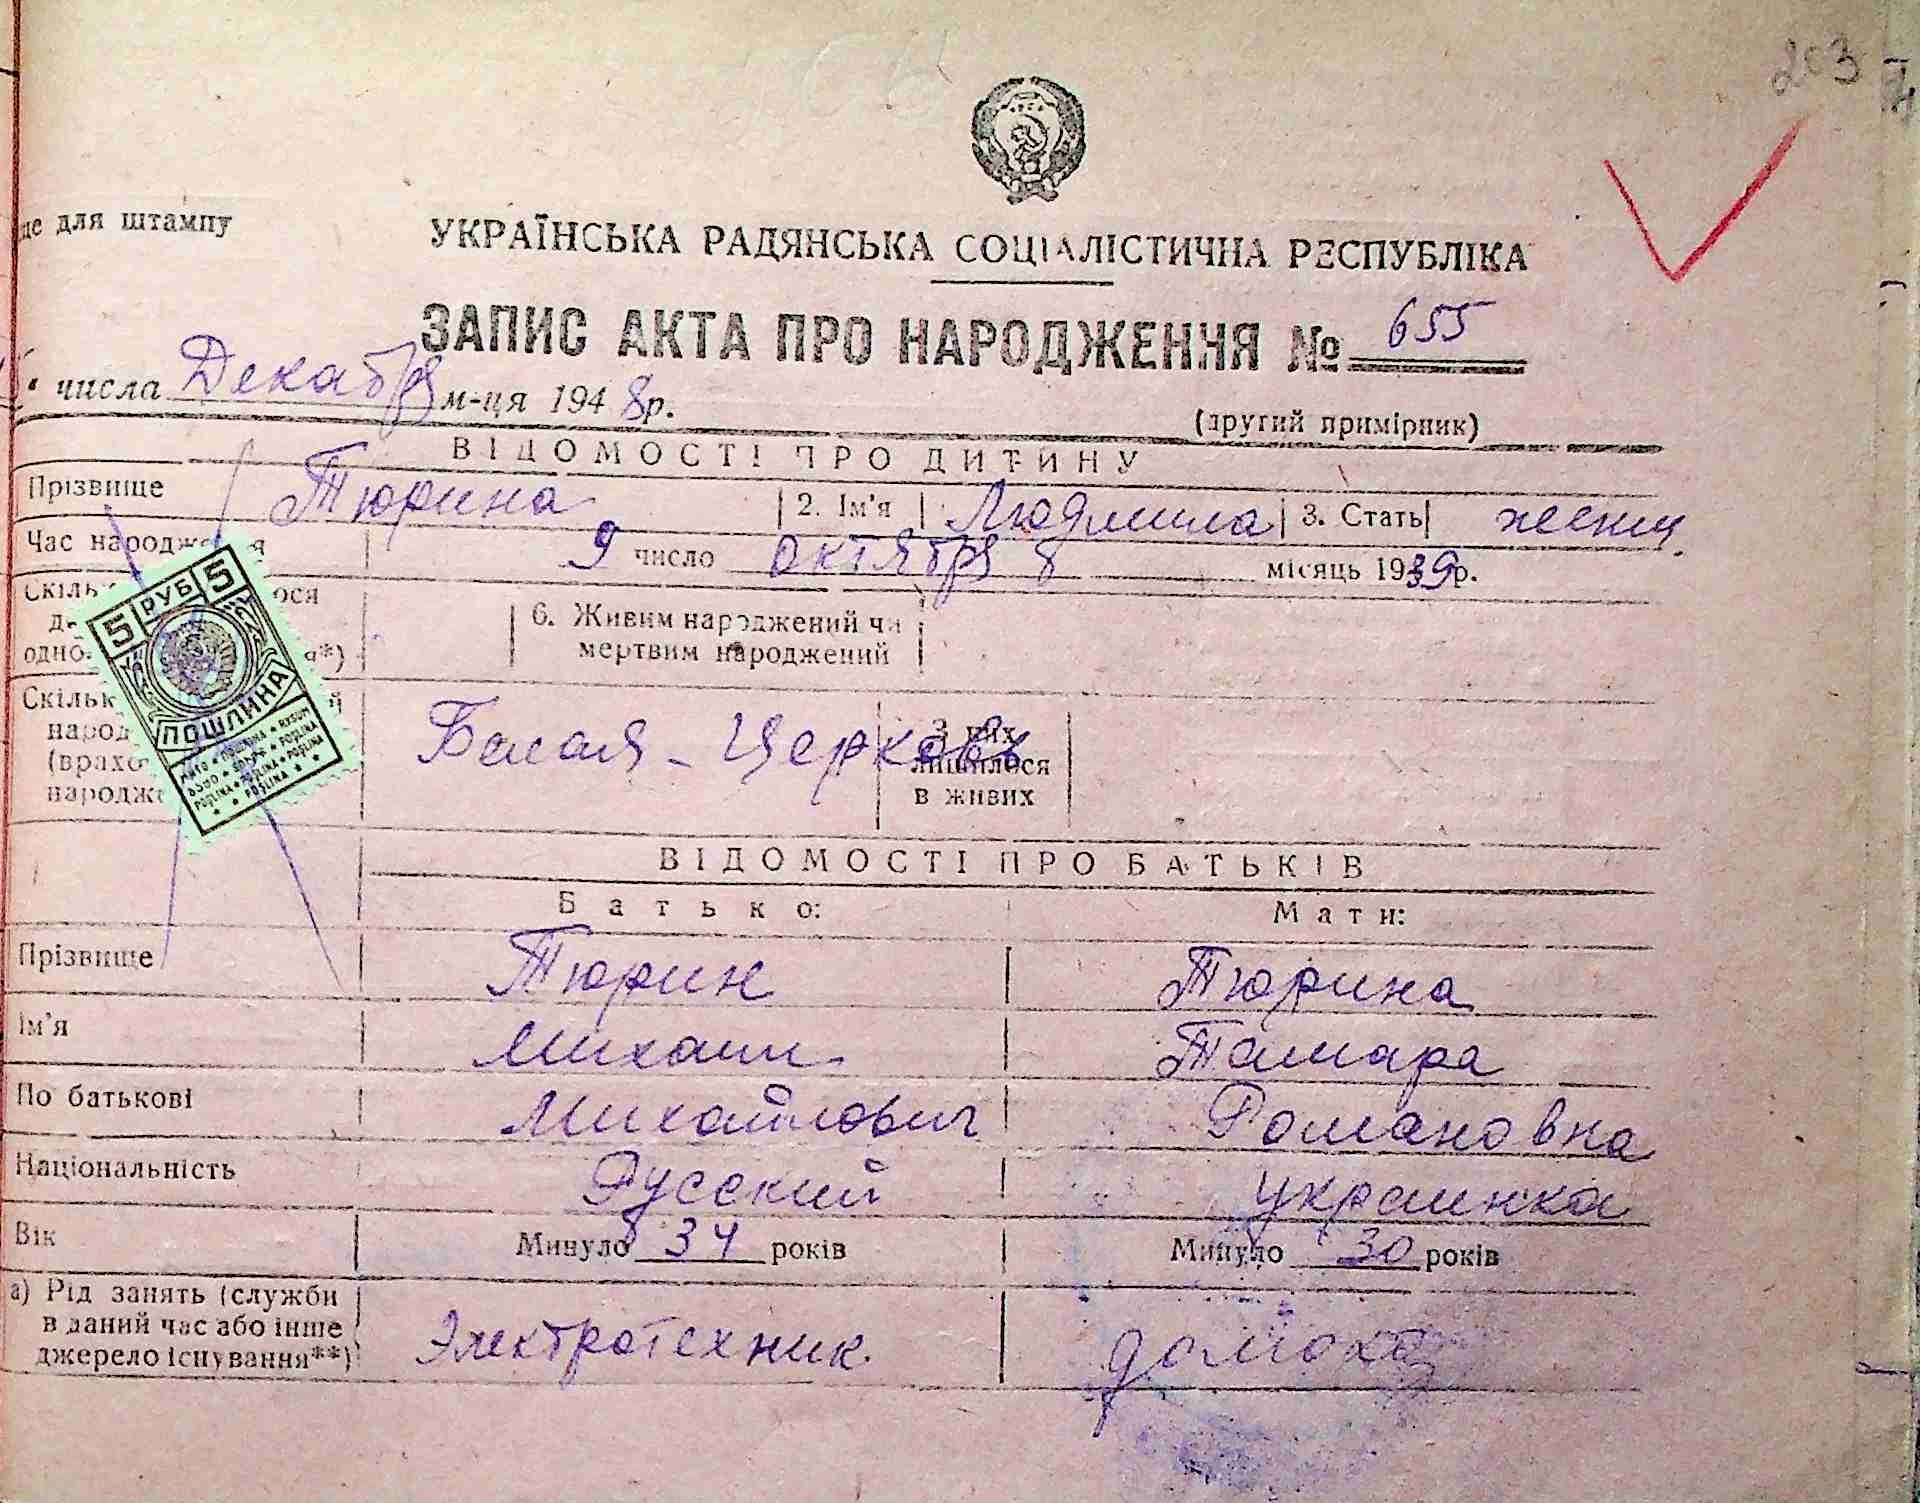 203
це для штампу
УКРАЇНСЬКА РАДЯНСЬКА СОЦІАЛІСТИЧНА РЕСПУБЛІКА
ЗАПИС АКТА ПРО НАРОДЖЕННЯ № 655
числа Декабря м-ця 1948 р.
(другий примірник)
ВІДОМОСТІ ПРО ДИТИНУ
Прізвище Тюрина 2. Ім'я Людмила 3. Стать женщ.
Час народження 9 число октября місяць 1939 р.
6. Живим народжений чи
мертвим народжений
5 РУБ 5
ПОШЛИНА
Белая-Церковь
З них
лишилося
в живих
ВІДОМОСТІ ПРО БАТЬКІВ
Батько: Мати:
Прізвище Тюрин Тюрина
Ім'я Михаил Тамара
По батькові Михайлович Романовна
Національність Русский украинка
Вік Минуло 34 років Минуло 30 років
а) Рід занять (служби
в даний час або інше
джерело існування**) Электротехник домохоз